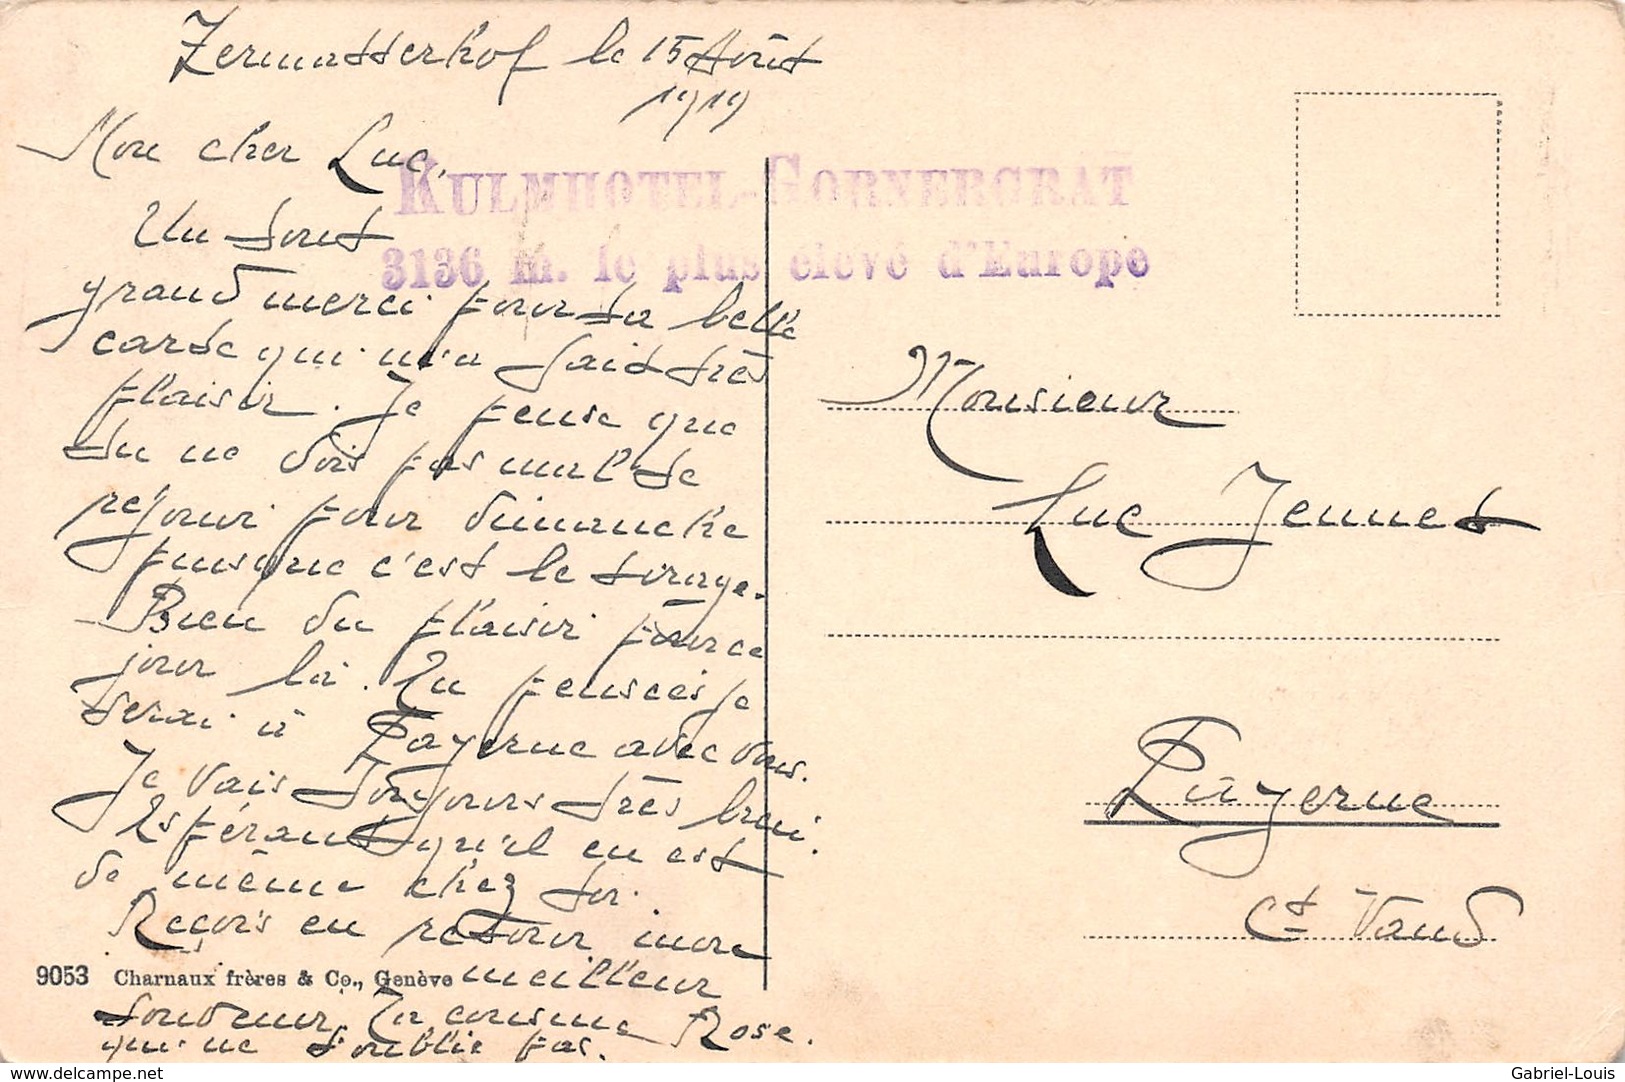 Zermatterhof le 15 Août
1919
Mon cher Luc,
KULMHOTEL-GORNERGRAT
3136 m. le plus élevé d'Europe
Un tout
grand merci pour ta belle
carte qui m'a fait très
plaisir. Je pense que
tu ne dois pas mal te
réjouir pour dimanche
puisque c'est le tirage.
Bien du plaisir pour ce
jour là. En pensées je
serai à Payerne avec vous.
Je vais toujours très bien.
Espérant qu'il en est
de même chez toi.
Reçois en retour mon
meilleur
souvenir. Ta cousine Rose.
qui ne t'oublie pas.
9053 Charnaux frères & Co., Genève
Monsieur
Luc Jennet
Payerne
Ct Vaud
www.delcampe.net
Gabriel-Louis